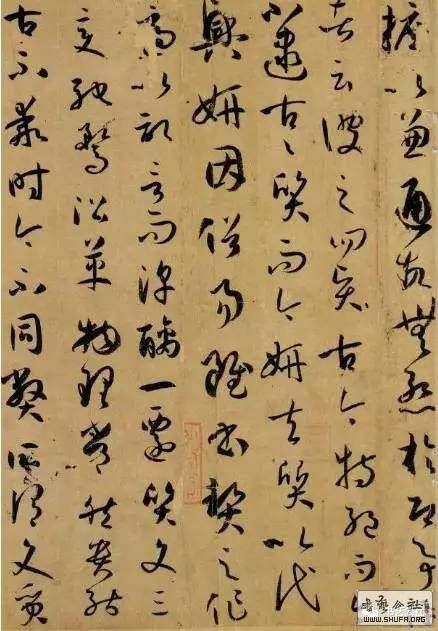 摭以兼通故無慚於即事
者云彼之四賢古今特絕而
不逮古〻質而今妍夫質以代
興妍因俗易雖書契之作
適以記言而淳醨一遷質文三
變馳騖沿革物理常然貴能
古不乖時今不同弊所謂文質
書藝公社
WWW.SHUFA.ORG